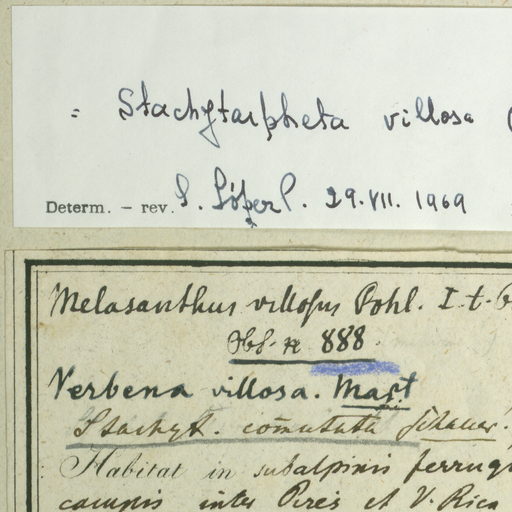 = Stachytarpheta villosa (
Determ. – rev. S. 29.VII. 1969
Melasanthus villosus Pohl. I. t. 6
Obs. n 888
Verbena villosa. Mart
Stachyt. comutata Schauer.
Habitat in subalpinis ferrugi
campis inter Pires et V. Rica